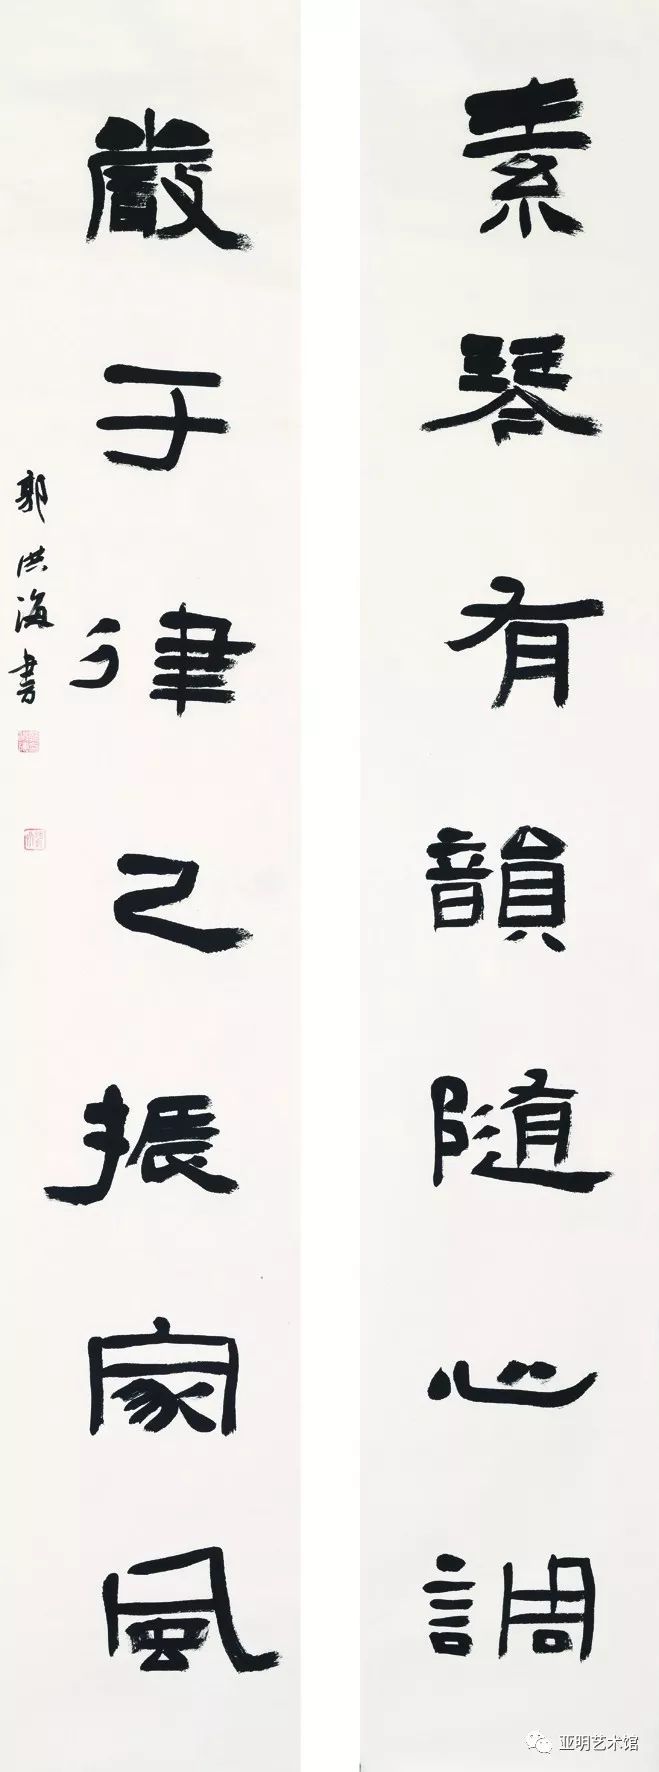 素琴有韻隨心調
嚴于律己振家風
郭洪海書
亚明艺术馆